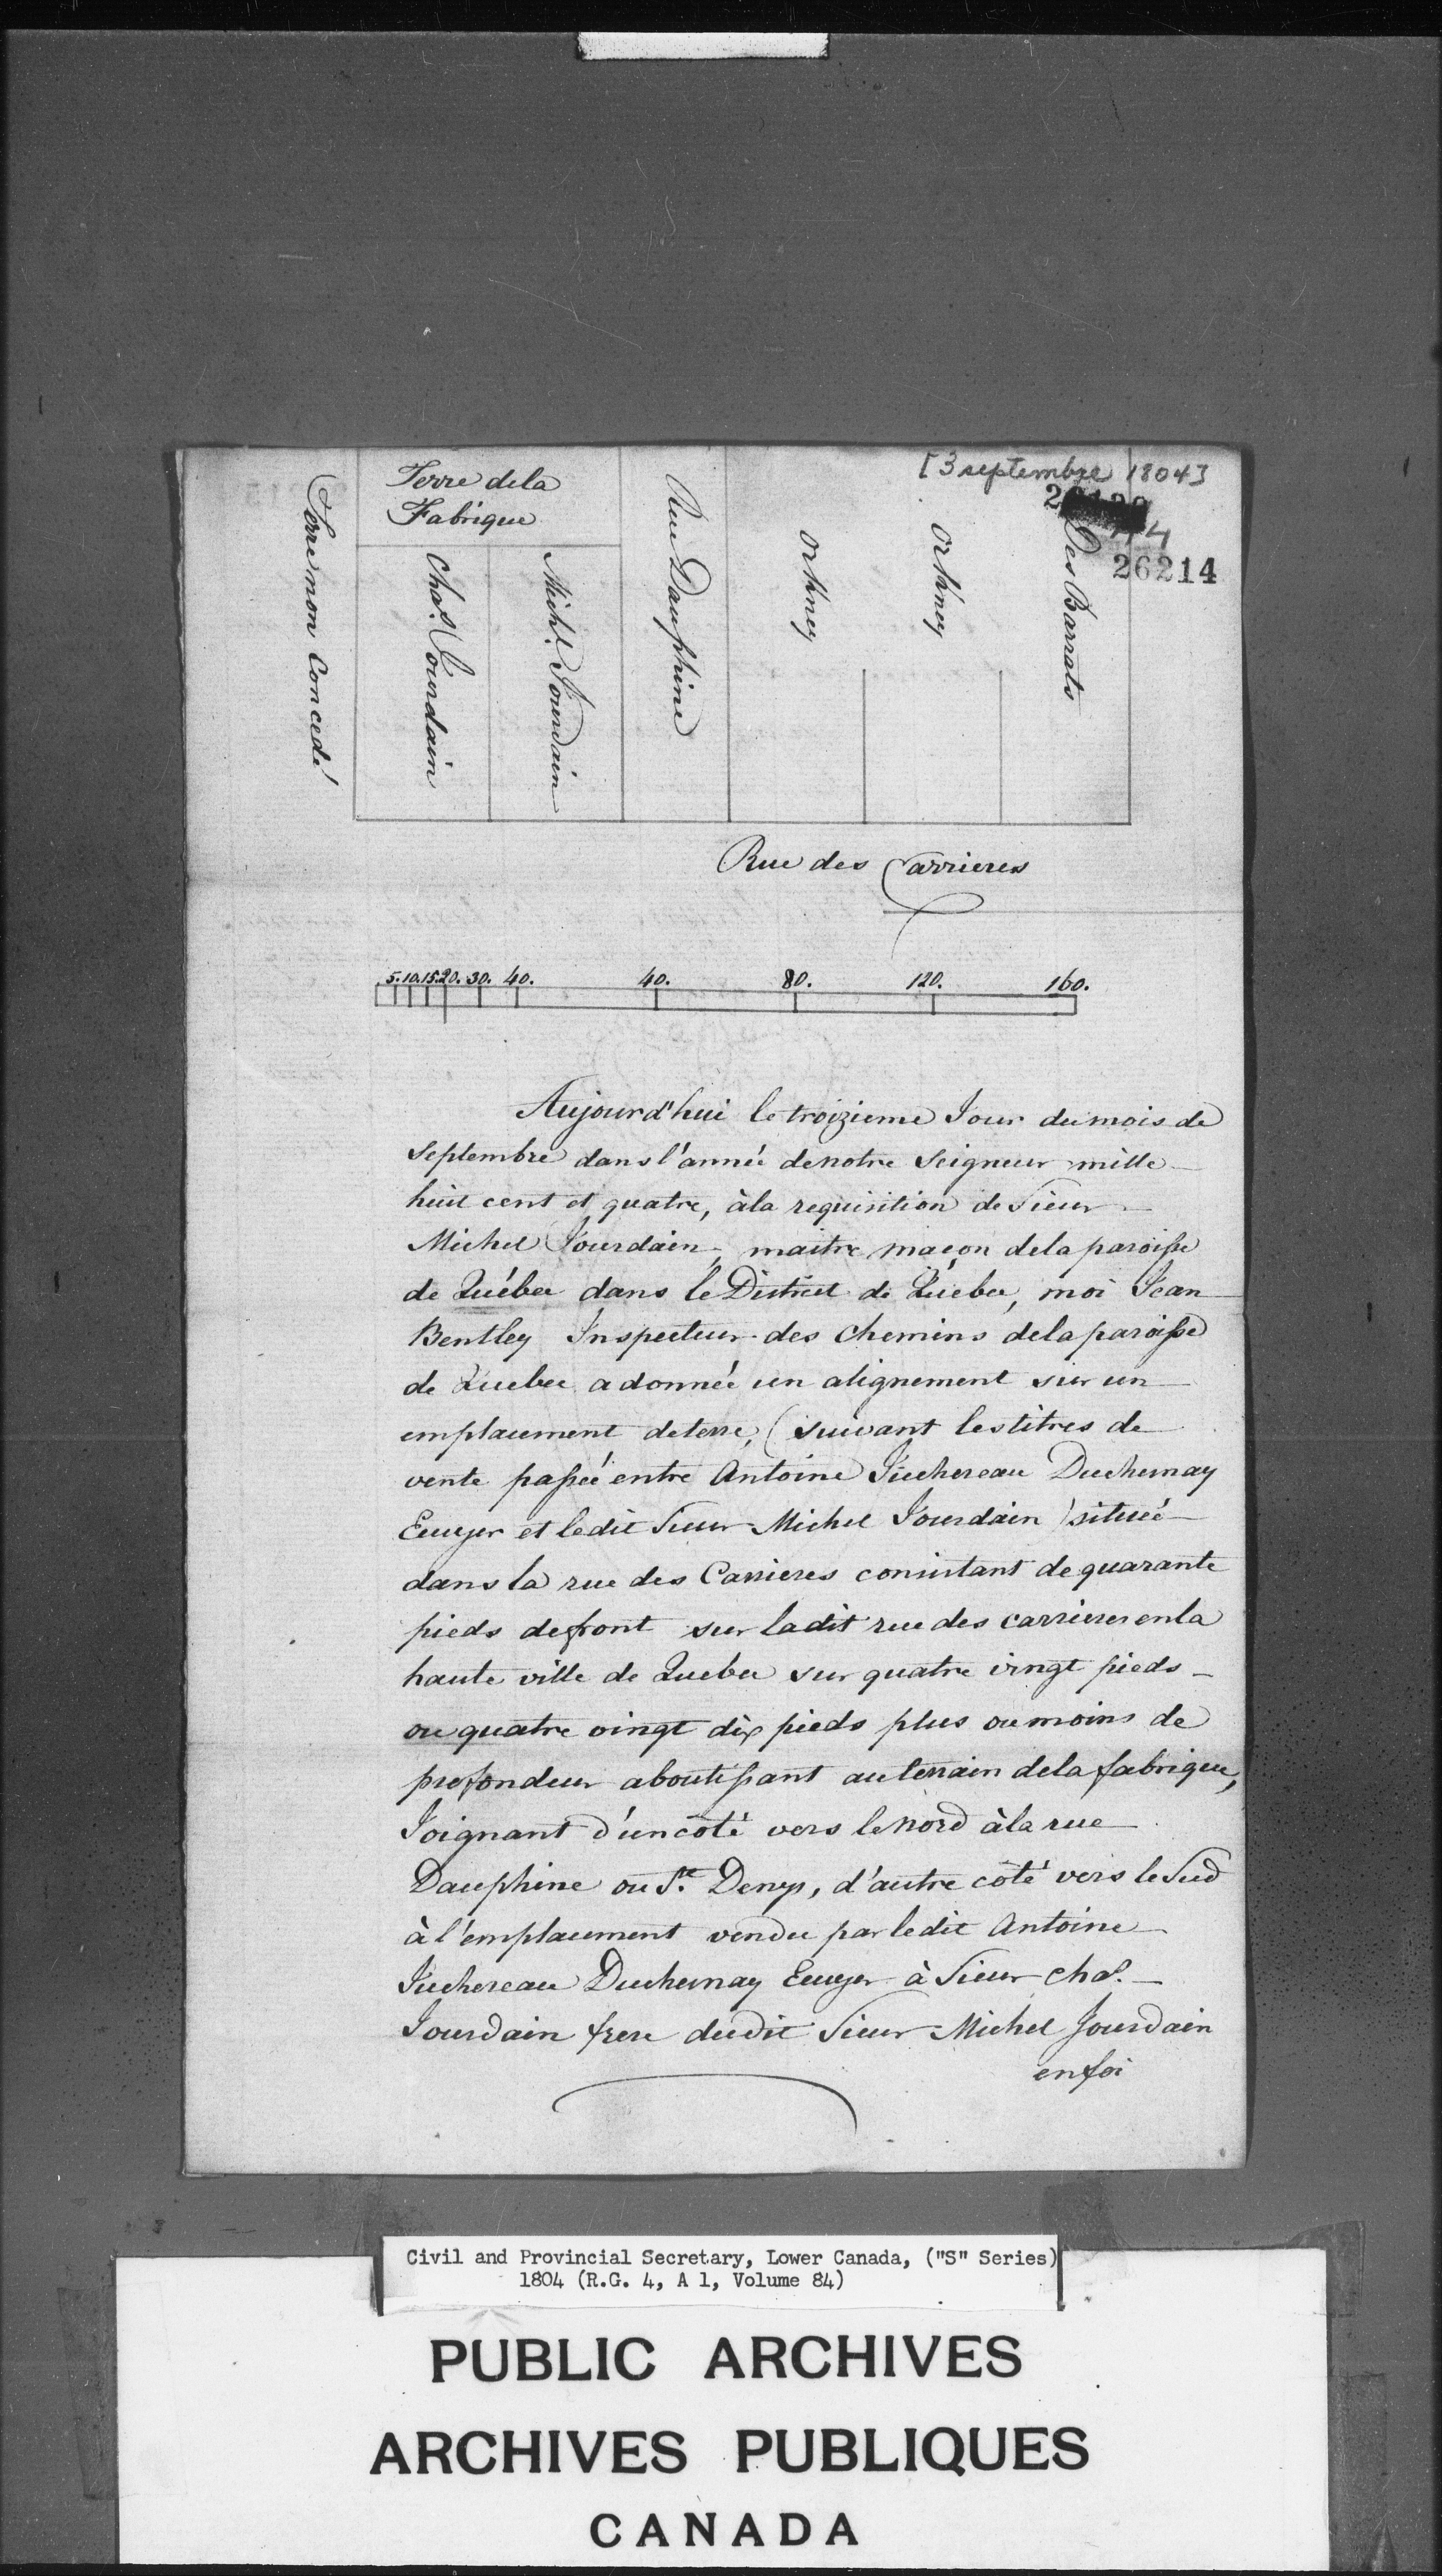 [3 septembre 1804]
26214
Terre dela
Fabrique
Terre non Concedé
Chas. Jourdain
Michl. Jourdain
Rue Dauphine
Orkney
Orkney
Des Barrats
Rue des Carrieres
5. 10. 15. 20. 30. 40. 40. 80. 120. 160.
Aujourd'hui le troizieme Jour du mois de
Septembre dans l'année de notre Seigneur mille
huit cent et quatre, à la requisition de Sieur
Michel Jourdain, maitre maçon dela paroisse
de Québec dans le District de Québec, moi Jean
Bentley Inspecteur des Chemins dela paroisse
de Quebec a donnée un alignement sur un
emplacement deterre, (suivant les titres de
vente passée entre Antoine Juchereau Duchernay
Ecuyer et ledit Sieur Michel Jourdain) située
dans la rue des Carrieres consistant de quarante
pieds defront sur ladit rue des carrieres en la
haute ville de Quebec sur quatre vingt pieds
ou quatre vingt dix pieds plus ou moins de
profondeur aboutissant au terrain dela fabrique,
Joignant d'un côté vers le Nord à la rue
Dauphine ou Ste. Denys, d'autre côté vers le Sud
à l'emplacement vendu par ledit Antoine
Juchereau Duchernay Ecuyer à Sieur Chas.
Jourdain frere dudit Sieur Michel Jourdain
en foi
Civil and Provincial Secretary, Lower Canada, ("S" Series)
1804 (R.G. 4, A 1, Volume 84)
PUBLIC ARCHIVES
ARCHIVES PUBLIQUES
CANADA